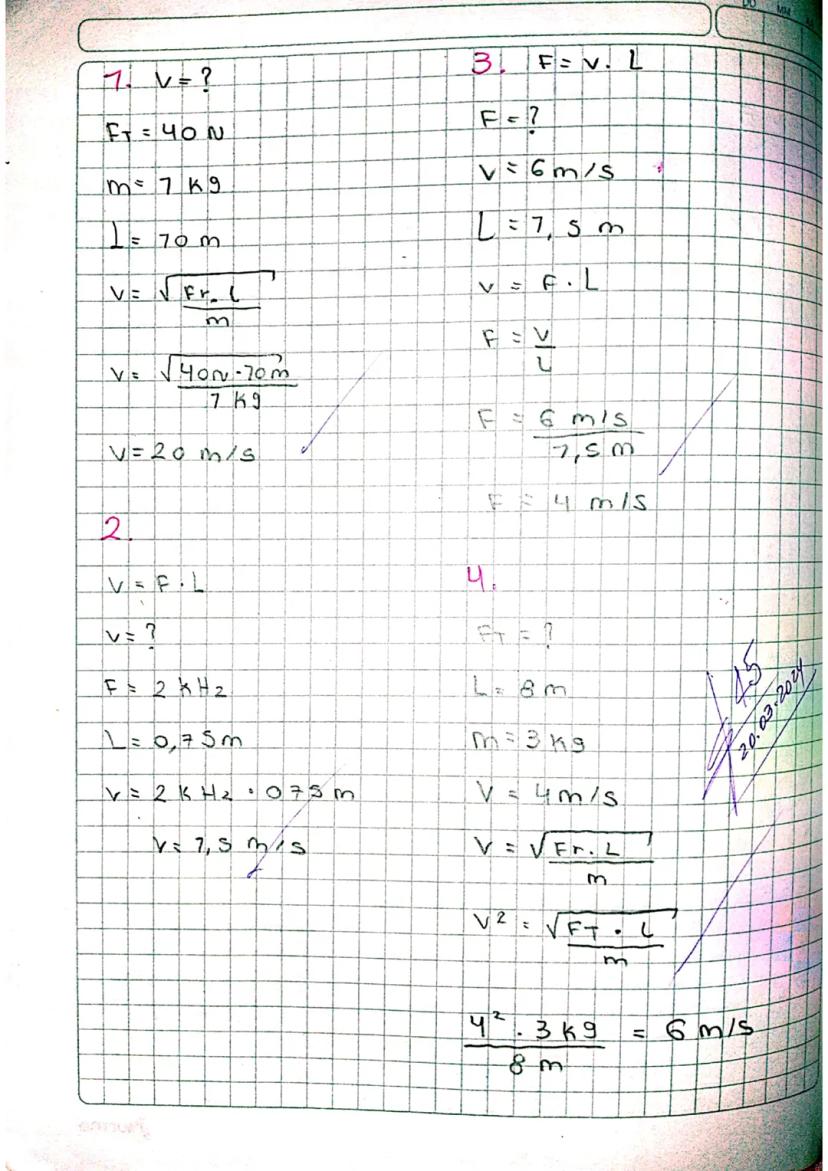 DD MM
1. V = ?
FT = 40 N
m = 7 kg
L = 70 m
V = √Fr. L
m
V = √40N · 70m
7 kg
V = 20 m/s
2.
V = F . L
V = ?
F = 2 KHz
L = 0,75m
V = 2 KHz · 075 m
V = 7,5 m/s
3. F = V . L
F = ?
V = 6 m/s
L = 7,5 m
V = F . L
F = V
L
F = 6 m/s
7,5 m
F = 4 m/s
4.
FT = ?
L = 8m
m = 3 kg
V = 4m/s
V = √Fr. L
m
V² = √FT . L
m
4² . 3 kg = 6 m/s
8 m
45
20.03.2024